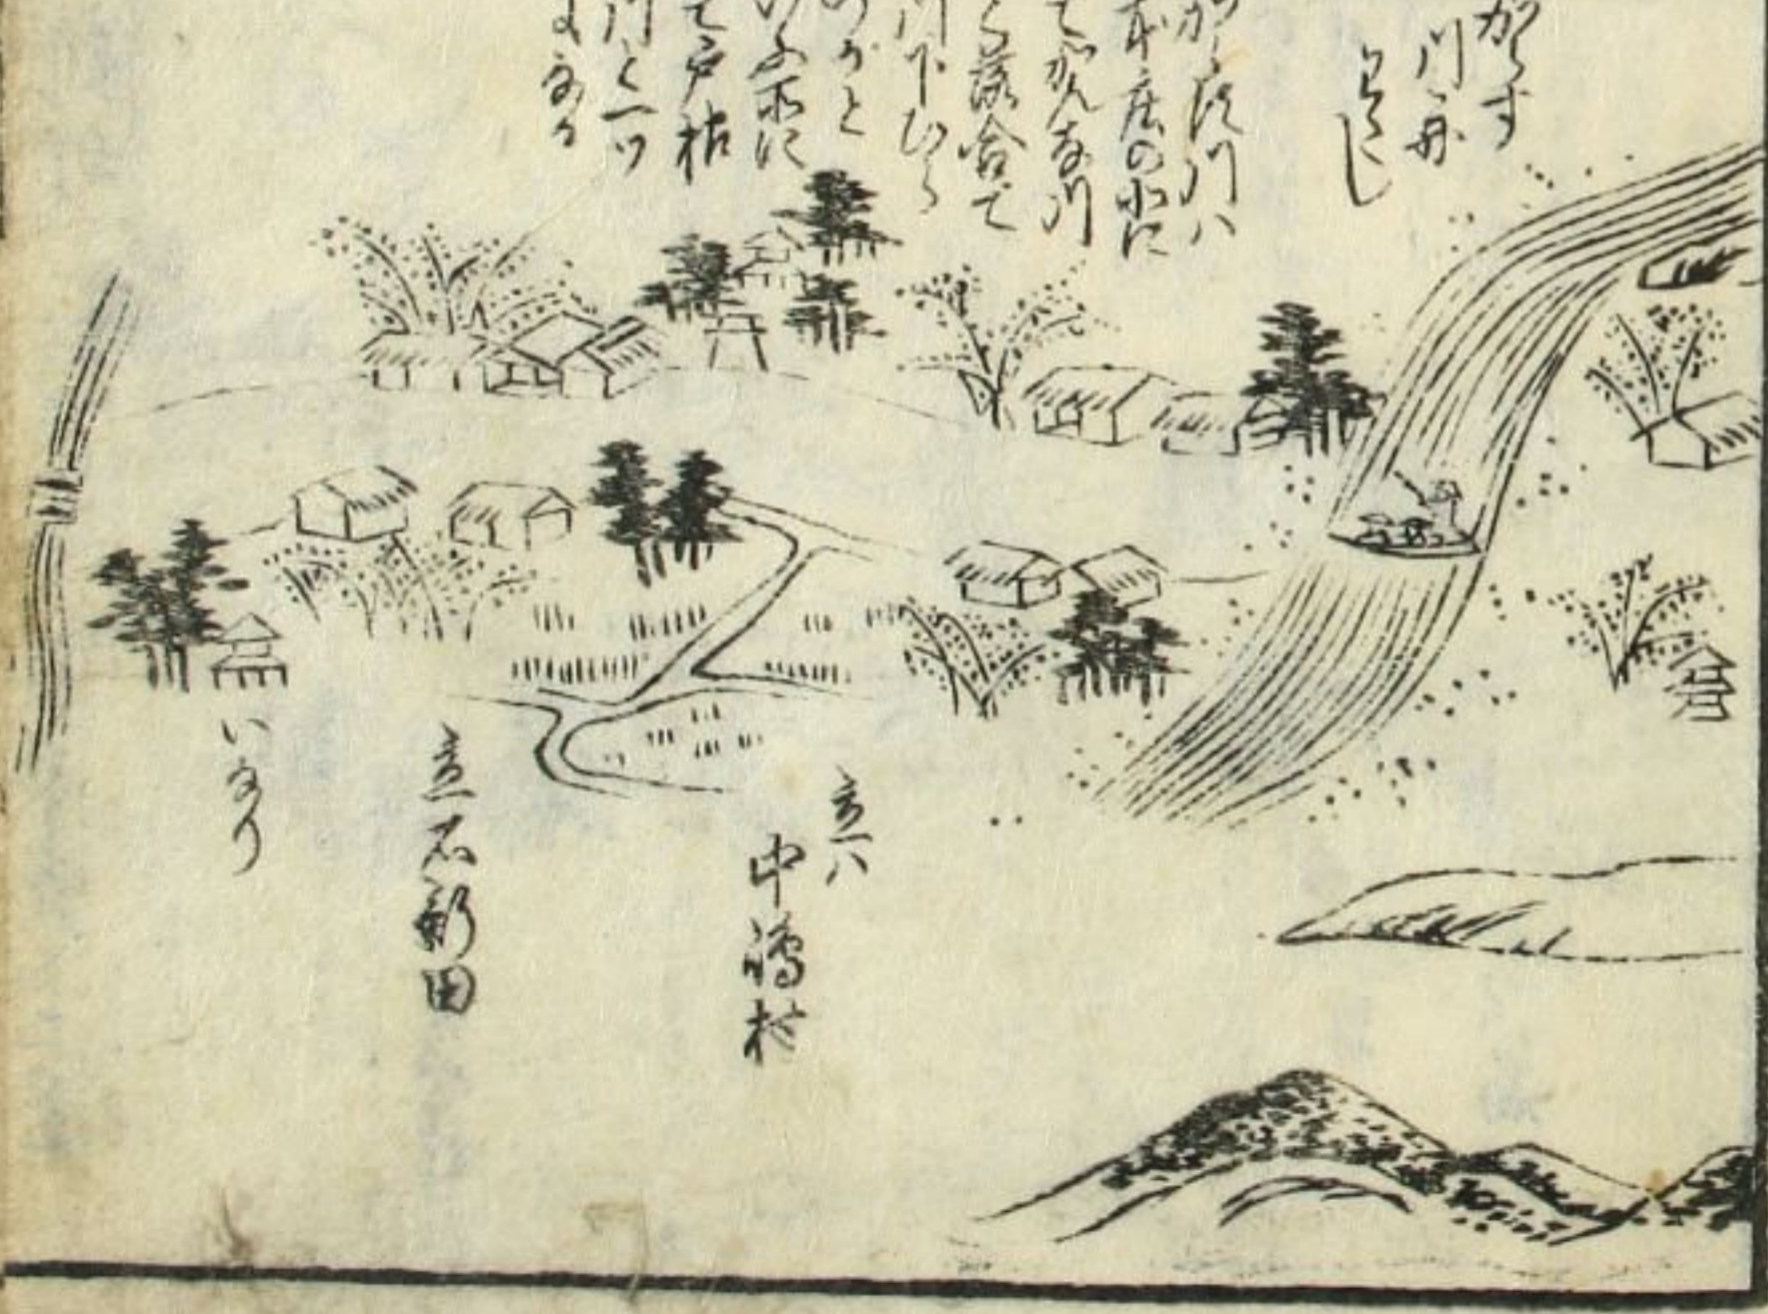 からす
川舟
わたし
から須川ハ
本庄の北に
てかんな川
と落合て
川下
いふ所に
て戸祢
川と一ツ
になる
立ハ
中嶋村
立石新田
いなり